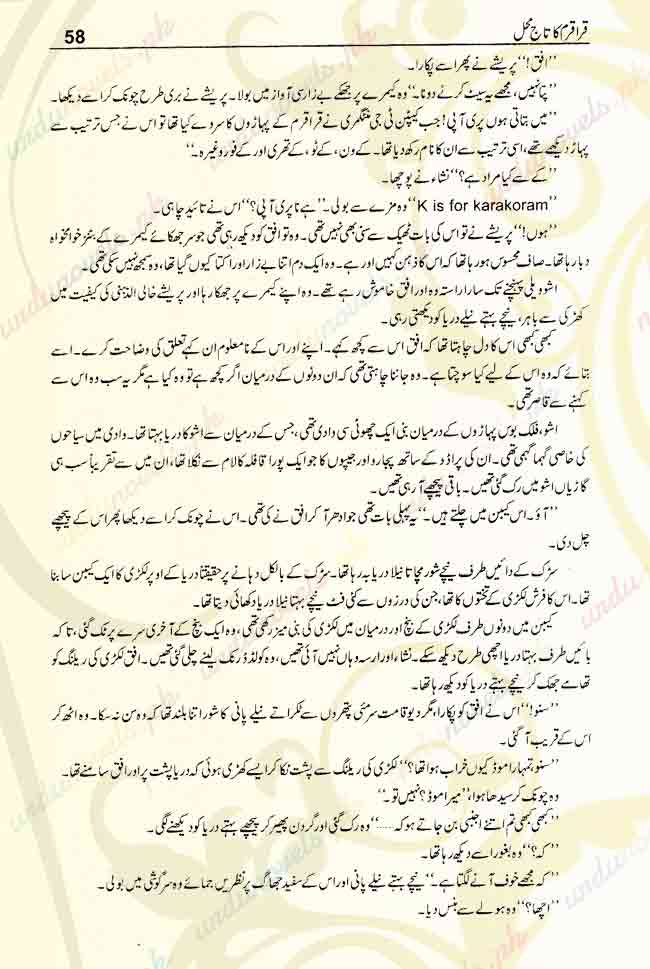 قراقرم کا تاج محل 58
”افق!“ پریشے نے پھر اسے پکارا۔
”پتا نہیں، مجھے یہ سیٹ کرنے دو نا۔“ وہ کیمرے پر جھکے بے زار سی آواز میں بولا۔ پریشے نے بری طرح چونک کر اسے دیکھا۔
”میں بتاتی ہوں پری آپی! جب کیپٹن ٹی جی منٹگمری نے قراقرم کے پہاڑوں کا سروے کیا تھا تو اس نے جس ترتیب سے
پہاڑ دیکھے تھے، اسی ترتیب سے ان کا نام رکھ دیا تھا۔ کے ون، کے ٹو، کے تھری اور کے فور وغیرہ۔“
”کے سے کیا مراد ہے؟“ نشاء نے پوچھا۔
”K is for karakoram“ وہ مزے سے بولی۔ ”ہے نا پری آپی؟“ اس نے تائید چاہی۔
”ہوں!“ پریشے نے تو اس کی بات ٹھیک سے سنی بھی نہیں تھی۔ وہ تو افق کو دیکھ رہی تھی جو سر جھکائے کیمرے کے بٹنز خوامخواہ
دبا رہا تھا۔ صاف محسوس ہو رہا تھا کہ اس کا ذہن کہیں اور ہے۔ وہ ایک دم اتنا بے زار اور اکتا کیوں گیا تھا، وہ سمجھ نہیں سکی تھی۔
اشو ویلی پہنچنے تک سارا راستہ وہ اور افق خاموش رہے تھے۔ وہ اپنے کیمرے پر جھکا رہا اور پریشے خالی الذہنی کی کیفیت میں
کھڑکی سے باہر، نیچے بہتے نیلے دریا کو دیکھتی رہی۔
کبھی کبھی اس کا دل چاہتا تھا کہ افق اس سے کچھ کہے۔ اپنے اور اس کے نامعلوم ان کہے تعلق کی وضاحت کرے۔ اسے
بتائے کہ وہ اس کے لیے کیا سوچتا ہے۔ وہ جاننا چاہتی تھی کہ ان دونوں کے درمیان اگر کچھ ہے تو وہ کیا ہے مگر یہ سب وہ اس سے
کہنے سے قاصر تھی۔
اشو، فلک بوس پہاڑوں کے درمیان بنی ایک چھوٹی سی وادی تھی، جس کے درمیان سے اشو کا دریا بہتا تھا۔ وادی میں سیاحوں
کی خاصی گہما گہمی تھی۔ ان کی پراڈو کے ساتھ پجارو اور جیپوں کا جو ایک پورا قافلہ کالام سے نکلا تھا، ان میں سے تقریباً سب ہی
گاڑیاں اشو میں رک گئی تھیں۔ باقی پیچھے آ رہی تھیں۔
”آؤ۔ اس کیبن میں چلتے ہیں۔“ یہ پہلی بات تھی جو ادھر آ کر افق نے کی تھی۔ اس نے چونک کر اسے دیکھا پھر اس کے پیچھے
چل دی۔
سڑک کے دائیں طرف نیچے شور مچاتا نیلا دریا بہہ رہا تھا۔ سڑک کے بالکل دہانے پر حقیقتاً دریا کے اوپر لکڑی کا ایک کیبن سا بنا
تھا۔ اس کا فرش لکڑی کے تختوں کا تھا، جن کی درزوں سے کئی فٹ نیچے بہتا نیلا دریا دکھائی دیتا تھا۔
کیبن میں دونوں طرف لکڑی کے بنچ اور درمیان میں لکڑی کی بنی میز رکھی تھی، وہ ایک بنچ کے آخری سرے پر ٹک گئی، تاکہ
بائیں طرف بہتا دریا اچھی طرح دیکھ سکے۔ نشاء اور ارسہ وہاں نہیں آئی تھیں، وہ کولڈ ڈرنک لینے چلی گئی تھیں۔ افق لکڑی کی ریلنگ کو
تھامے جھک کر نیچے بہتے دریا کو دیکھ رہا تھا۔
”سنو!“ اس نے افق کو پکارا، مگر دیو قامت سرمئی پتھروں سے ٹکراتے نیلے پانی کا شور اتنا بلند تھا کہ وہ سن نہ سکا۔ وہ اٹھ کر
اس کے قریب آ گئی۔
”سنو، تمہارا موڈ کیوں خراب ہوا تھا؟“ لکڑی کی ریلنگ سے پشت ٹکا کر ایسے کھڑی ہوئی کہ دریا پشت پر اور افق سامنے تھا۔
وہ چونک کر سیدھا ہوا، ”میرا موڈ؟ نہیں تو۔“
”کبھی کبھی تم اتنے اجنبی بن جاتے ہو کہ.....“ وہ رک گئی اور گردن پھیر کر پیچھے بہتے دریا کو دیکھنے لگی۔
”کہ؟“ وہ بغور اسے دیکھ رہا تھا۔
”کہ مجھے خوف آنے لگتا ہے۔“ نیچے بہتے نیلے پانی اور اس کے سفید جھاگ پر نظریں جمائے وہ سرگوشی میں بولی۔
”اچھا؟“ وہ ہولے سے ہنس دیا۔
urdunovels.pk